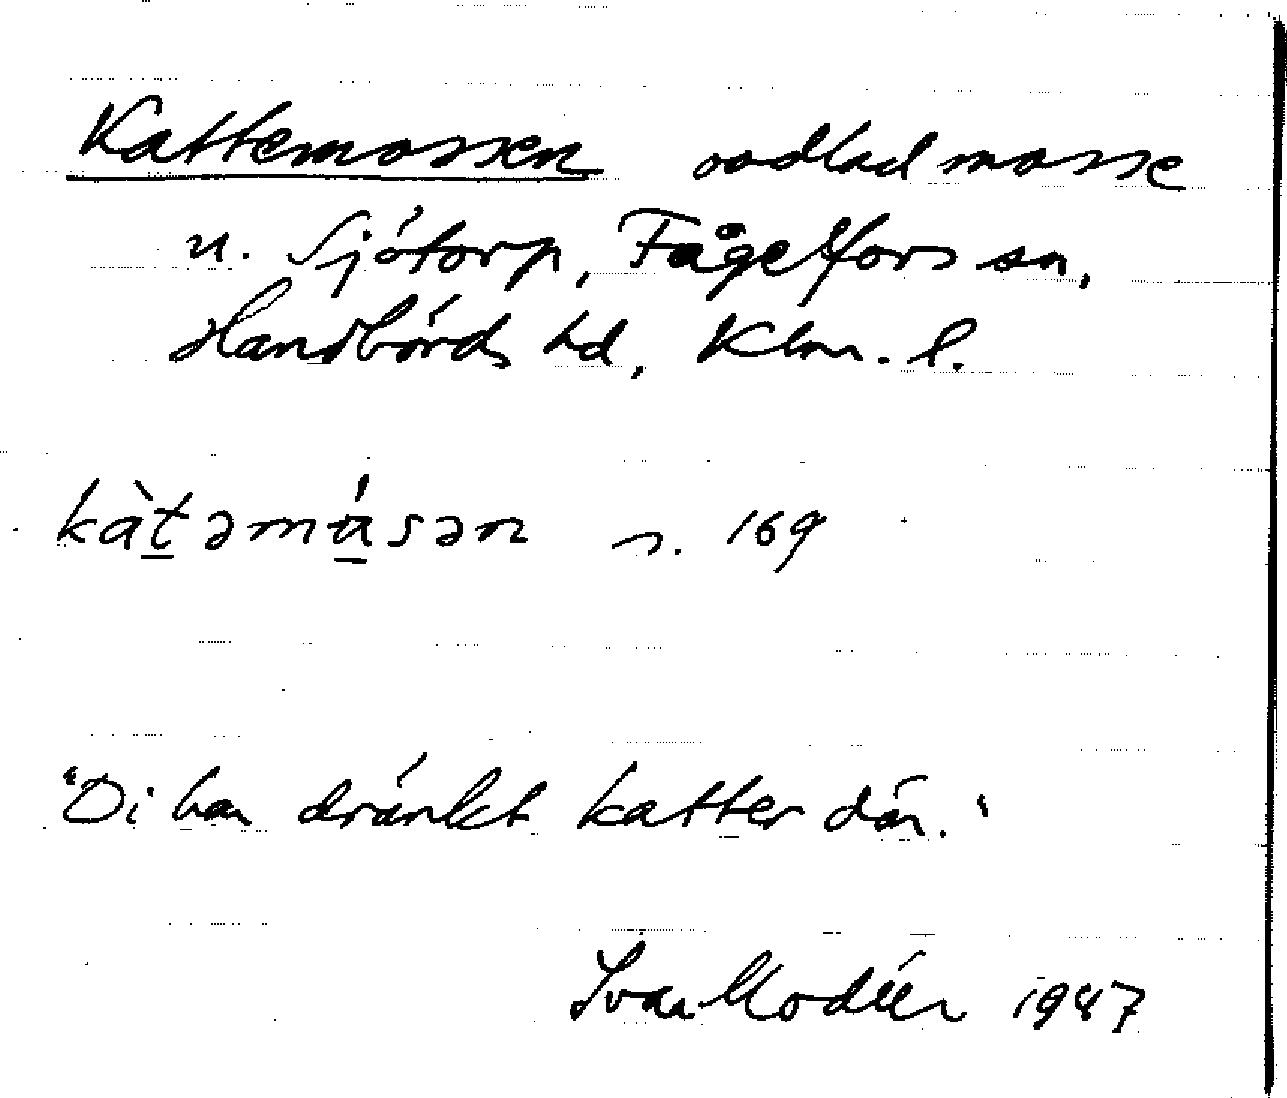 Kattemossen oodlad mosse
u. Sjötorp, Fågelfors sn,
Handbörds hd, Klm. l.
kàt̲əmá̲sən s. 169
"Di har dränkt katter där."
Ivar Modéer 1947